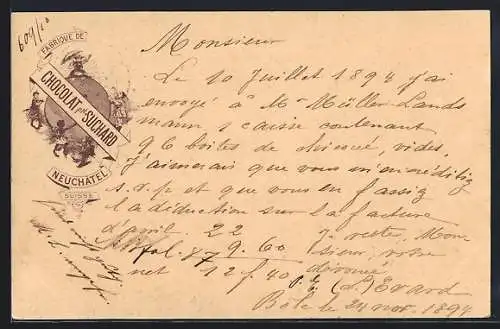 609/10
FABRIQUE DE
CHOCOLAT PH. SUCHARD
NEUCHATEL
SUISSE
Monsieur
Le 10 Juillet 1894 j'ai
envoyé à Mr Müller-Lands
mann 1 caisse contenant
96 boîtes de vides,
J'aimerais que vous m'en créditiez
s.v.p et que vous en
la déduction sur la facture
d'avril. 22 J. reste, Mon
9.60 sieur, votre
net 12 f. 40 dévoué
(L.) Evard
Bôle le 24 nov. 1894